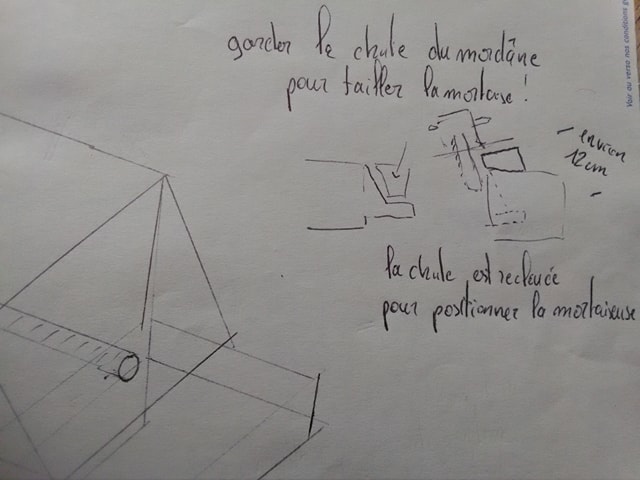 garder la chute du mordâne
pour tailler la mortaise !
environ
12cm
la chute est reclouée
pour positionner la mortaiseuse
Voir au verso nos conditions g